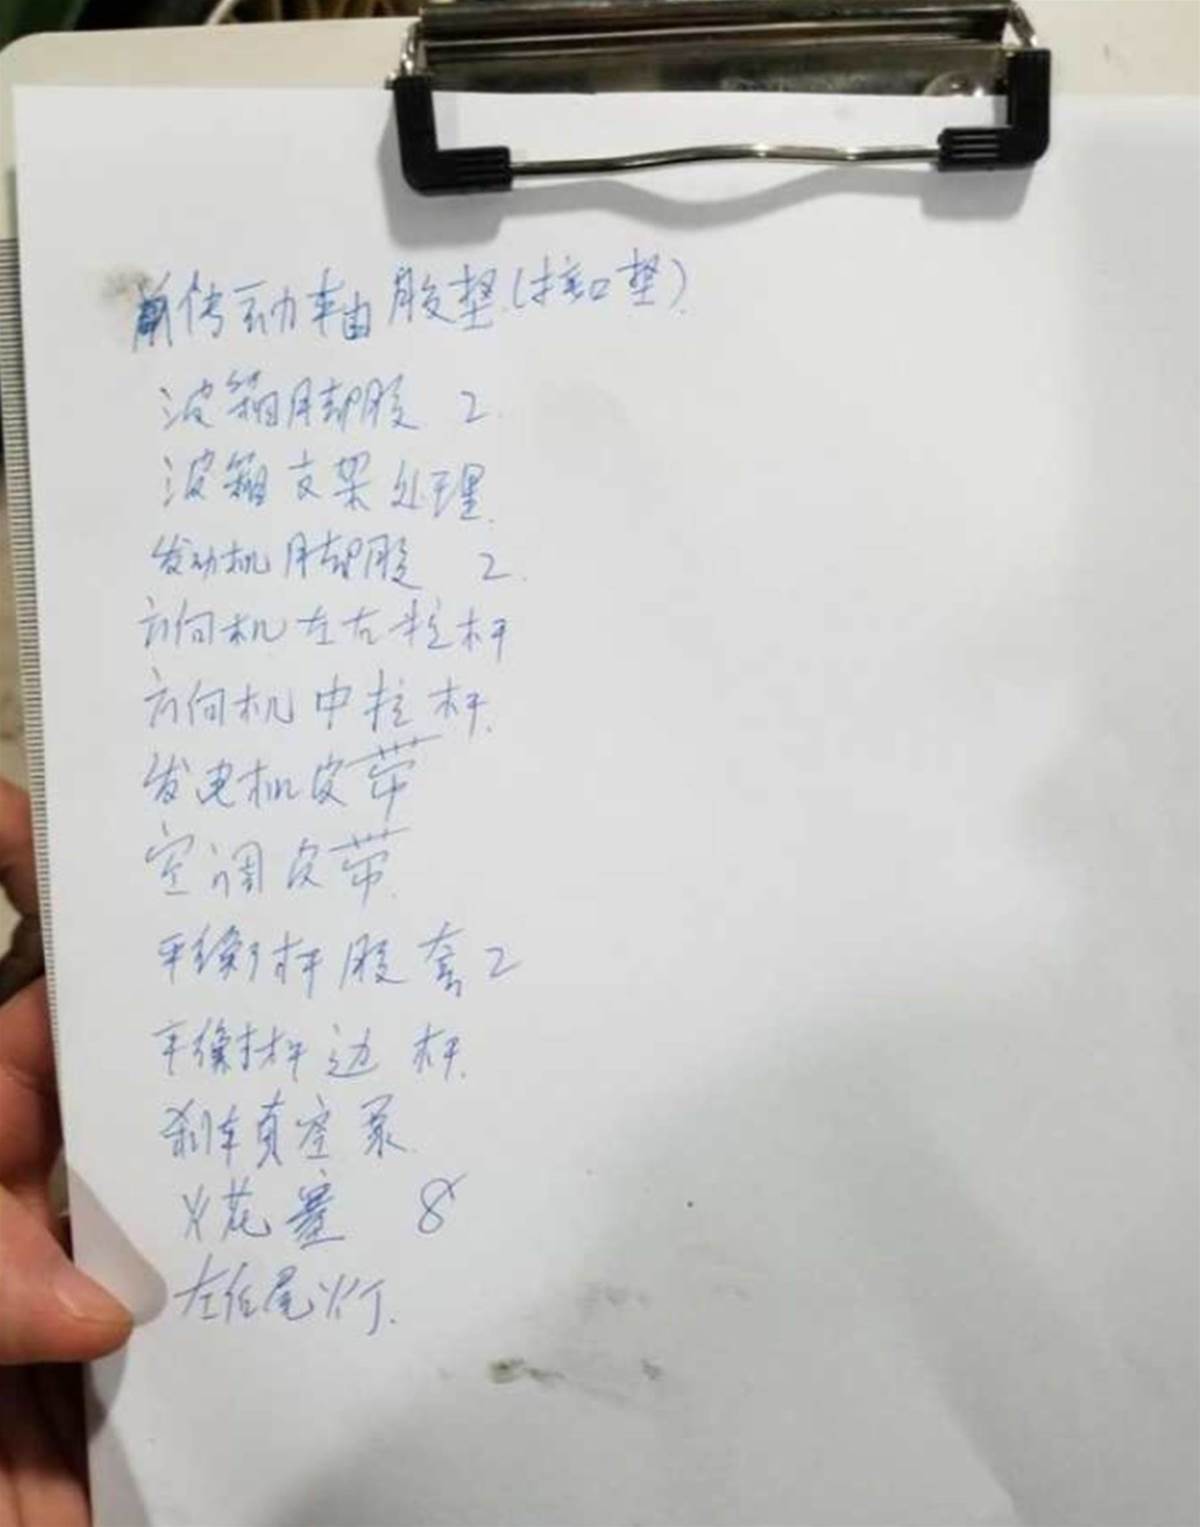 前传动轴胶垫(接口垫)
波箱脚胶 2.
波箱支架处理.
发动机脚胶 2.
方向机左右拉杆
方向机中拉杆.
发电机皮带
空调皮带.
平衡杆胶套2
平衡杆边杆.
刹车真空泵.
火花塞 8
左后尾灯.